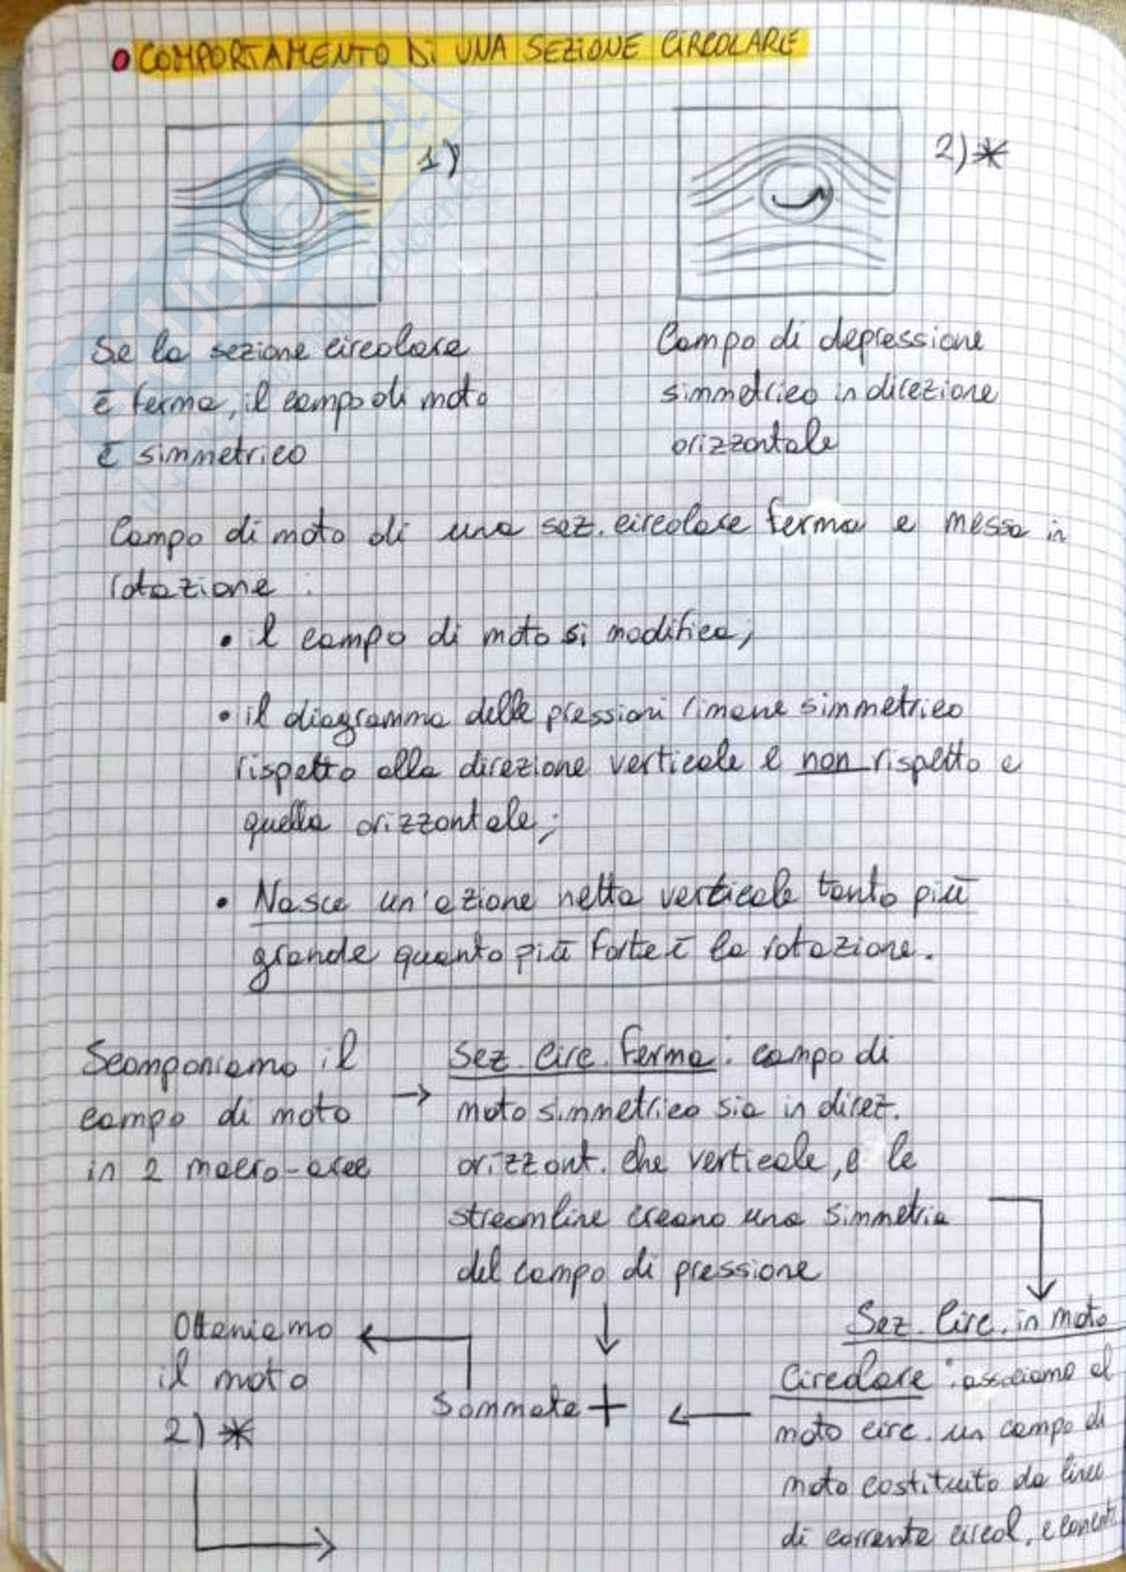 COMPORTAMENTO DI UNA SEZIONE CIRCOLARE
1)
2)*
Se la sezione circolare
è ferma, il campo di moto
è simmetrico
Campo di depressione
simmetrico in direzione
orizzontale
Campo di moto di una sez. circolare ferma e messa in
rotazione :
• il campo di moto si modifica;
• il diagramma delle pressioni rimane simmetrico
rispetto alla direzione verticale e non rispetto a
quella orizzontale;
• Nasce un'azione netta verticale tanto più
grande quanto più forte è la rotazione.
Scomponiamo il
campo di moto
in 2 macro-aree
→
Sez. Circ. Ferma: campo di
moto simmetrico sia in direz.
orizzont. che verticale, e le
streamline creano una simmetria
del campo di pressione
Sez. Circ. in moto
Circolare : associamo al
moto circ. un campo di
moto costituito da linee
di corrente circol. e
Sommate +
Otteniamo
il moto
2) *